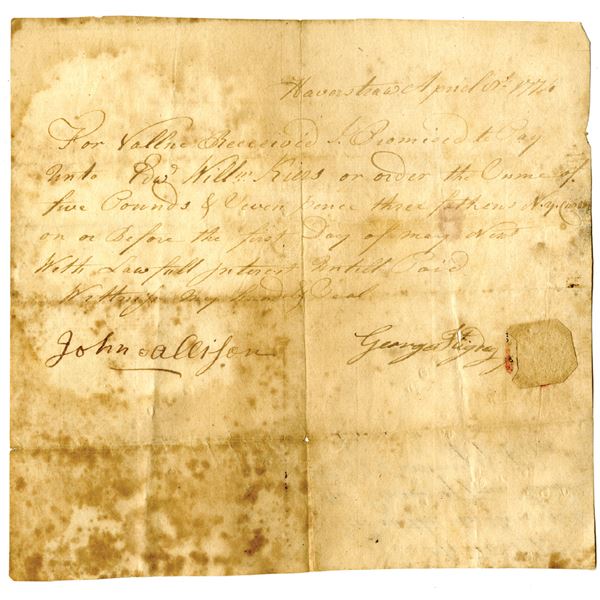 Haverstraw April 1774
For Vallue Received I Promised to Pay
Unto Edwd Willm Kiers or order the Sume of
five Pounds & Seven pence three fathens N. y. Curr
on or Before the first Day of may Next
With Lawfull Interest Untill Paid
Wittness my Hand & Seal
John Allison George